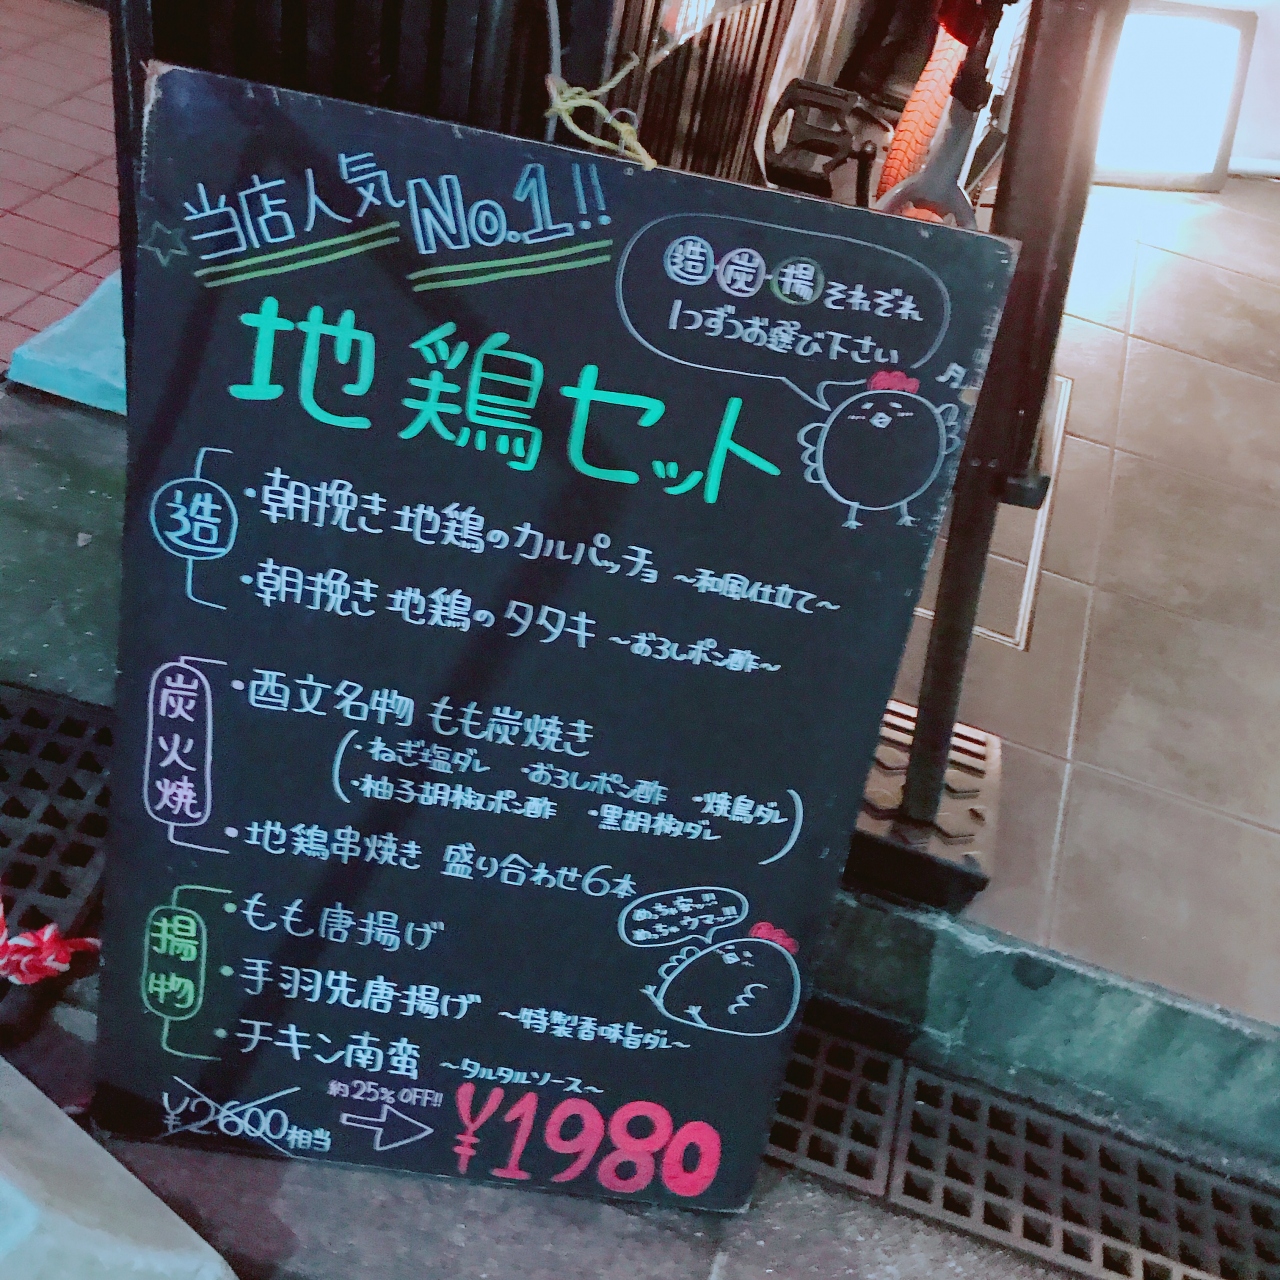 当店人気No.1!!
造・炭・揚それぞれ
1つずつお選び下さい
地鶏セット
造
・朝挽き地鶏のカルパッチョ ～和風仕立て～
・朝挽き地鶏のタタキ ～おろしポン酢～
炭火焼
・酉文名物 もも炭焼き
(・ねぎ塩ダレ ・おろしポン酢 ・焼鳥ダレ
・柚子胡椒ポン酢 ・黒胡椒ダレ)
・地鶏串焼き 盛り合わせ6本
揚物
・もも唐揚げ
・手羽先唐揚げ ～特製香味旨ダレ～
・チキン南蛮 ～タルタルソース～
めっちゃ安ッ!!
めっちゃウマッ!!
約25%OFF!!
¥2600相当 ⇨ ¥1980